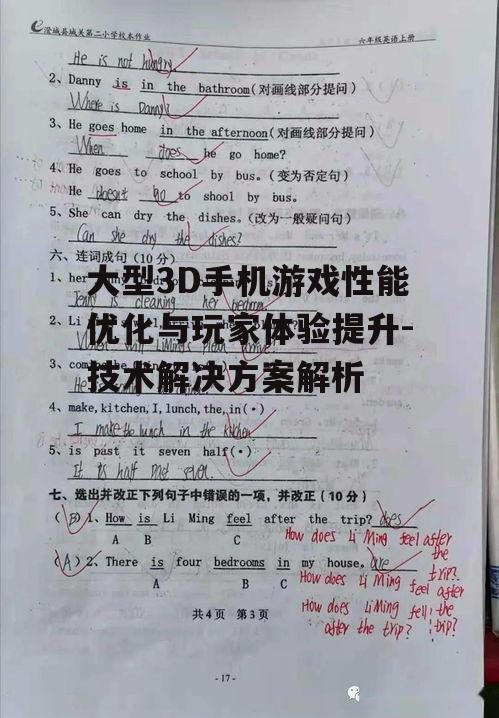 澄城县城关第二小学校本作业 六年级英语上册
He is not hungry
2、Danny is in the bathroom(对画线部分提问)
Where is Danny?
3、He goes home in the afternoon(对画线部分提问)
When does he go home?
4、He goes to school by bus.(变为否定句)
He doesn't go to shool by bus.
5、She can dry the dishes.(改为一般疑问句)
Can she dry the dishes?
六、连词成句(10分)
大型3D手机游戏性能
优化与玩家体验提升-
技术解决方案解析
1、her
Jenny is cleaning her bedroom
2、Li
3、com
4、make,kitchen,I,lunch,the,in(.)
I make the lunch in the kitchen
5、is past it seven half(.)
It is half past seven.
七、选出并改正下列句子中错误的一项,并改正(10分)
(B)1、How is Li Ming feel after the trip? does
A B C
How does Li Ming feel after the trip?
(A)2、There is four bedrooms in my house. are
A B C
How does Li Ming feel after the trip?
How does Li Ming fell after the trip?
共4页 第3页
-17-